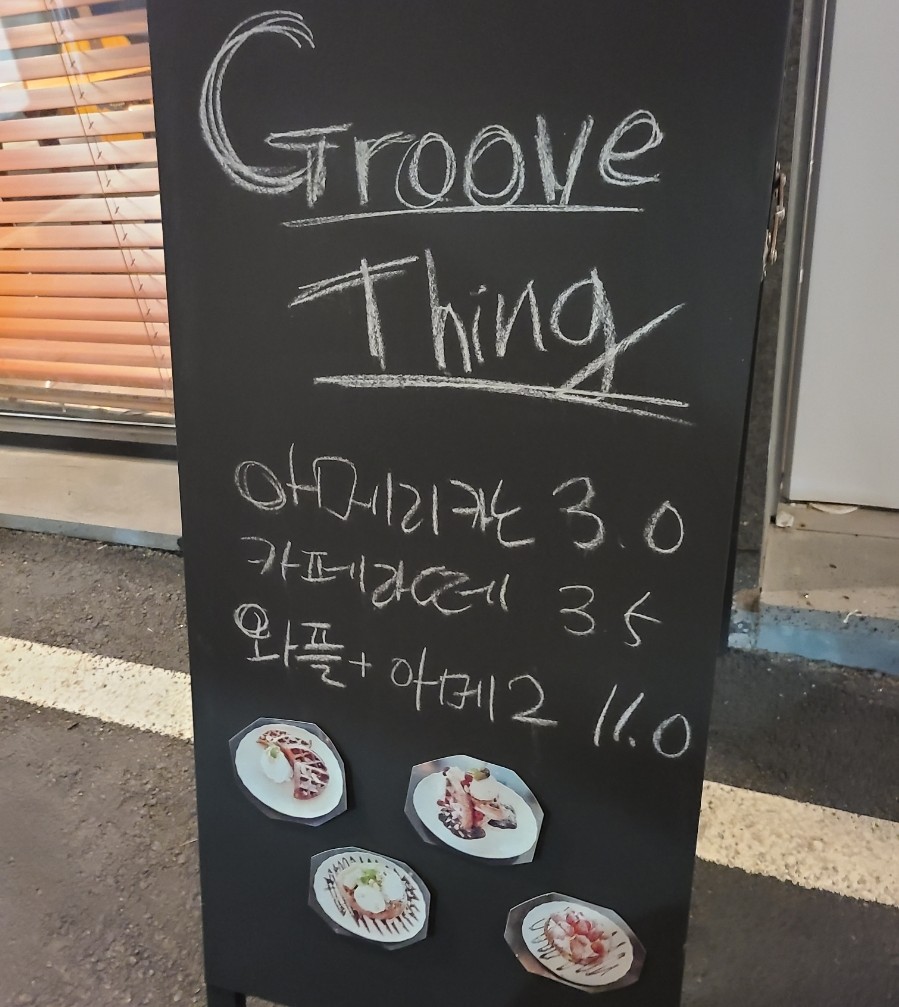 Groove
Thing
아메리카노 3.0
카페라떼 3.5
와플+아메2 11.0